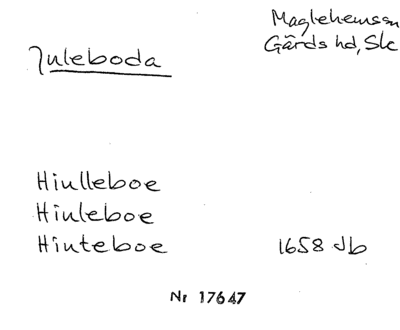 Juleboda
Maglehemssn
Gärds hd, Sk
Hiulleboe
Hiuleboe
Hiuteboe 1658 Jb
Nr 17647